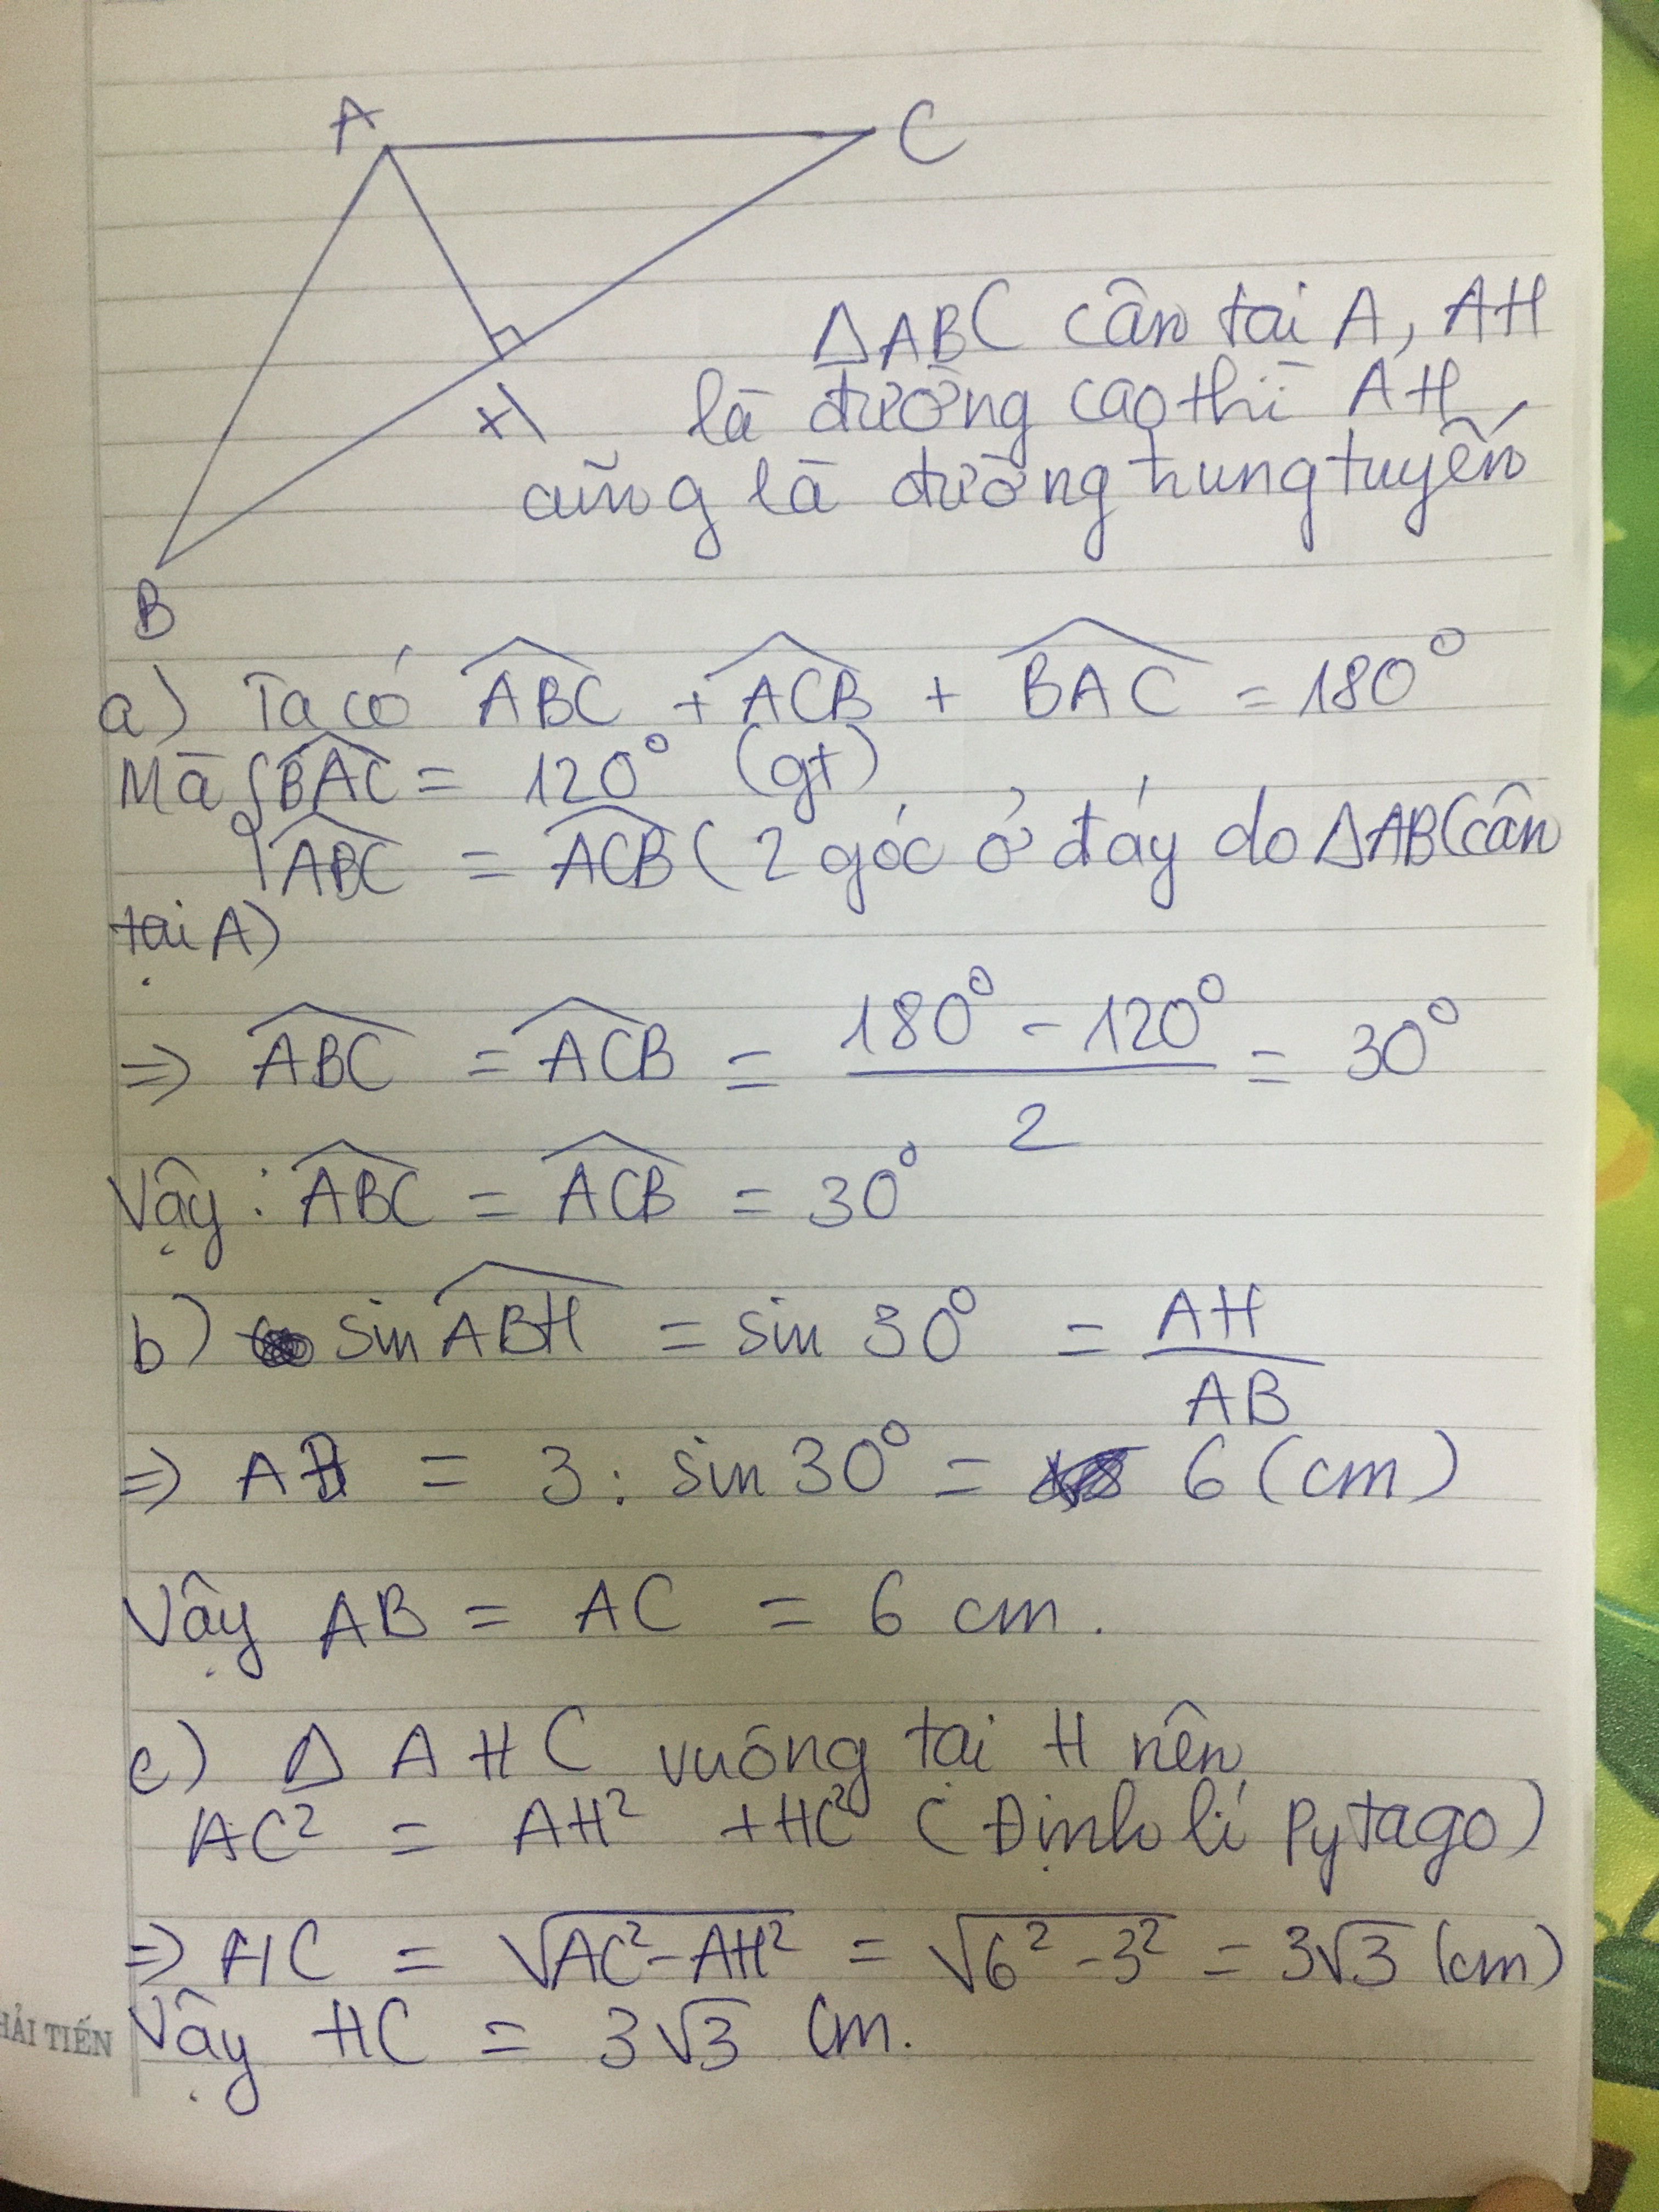 A
C
H
B
ΔABC cân tại A, AH
là đường cao thì AH
cũng là đường trung tuyến
a) Ta có \widehat{ABC} + \widehat{ACB} + \widehat{BAC} = 180°
Mà { \widehat{BAC} = 120° (gt)
\widehat{ABC} = \widehat{ACB} ( 2 góc ở đáy do ΔABC cân
tại A)
=> \widehat{ABC} = \widehat{ACB} = \frac{180° - 120°}{2} = 30°
Vậy : \widehat{ABC} = \widehat{ACB} = 30°
b) sin \widehat{ABH} = sin 30° = \frac{AH}{AB}
=> AB = 3 : sin 30° = 6 (cm)
Vậy AB = AC = 6 cm.
c) Δ AHC vuông tại H nên
AC² = AH² + HC² ( Định lí Pytago)
=> HC = √(AC² - AH²) = √(6² - 3²) = 3√3 (cm)
Vậy HC = 3√3 cm.
HẢI TIẾN